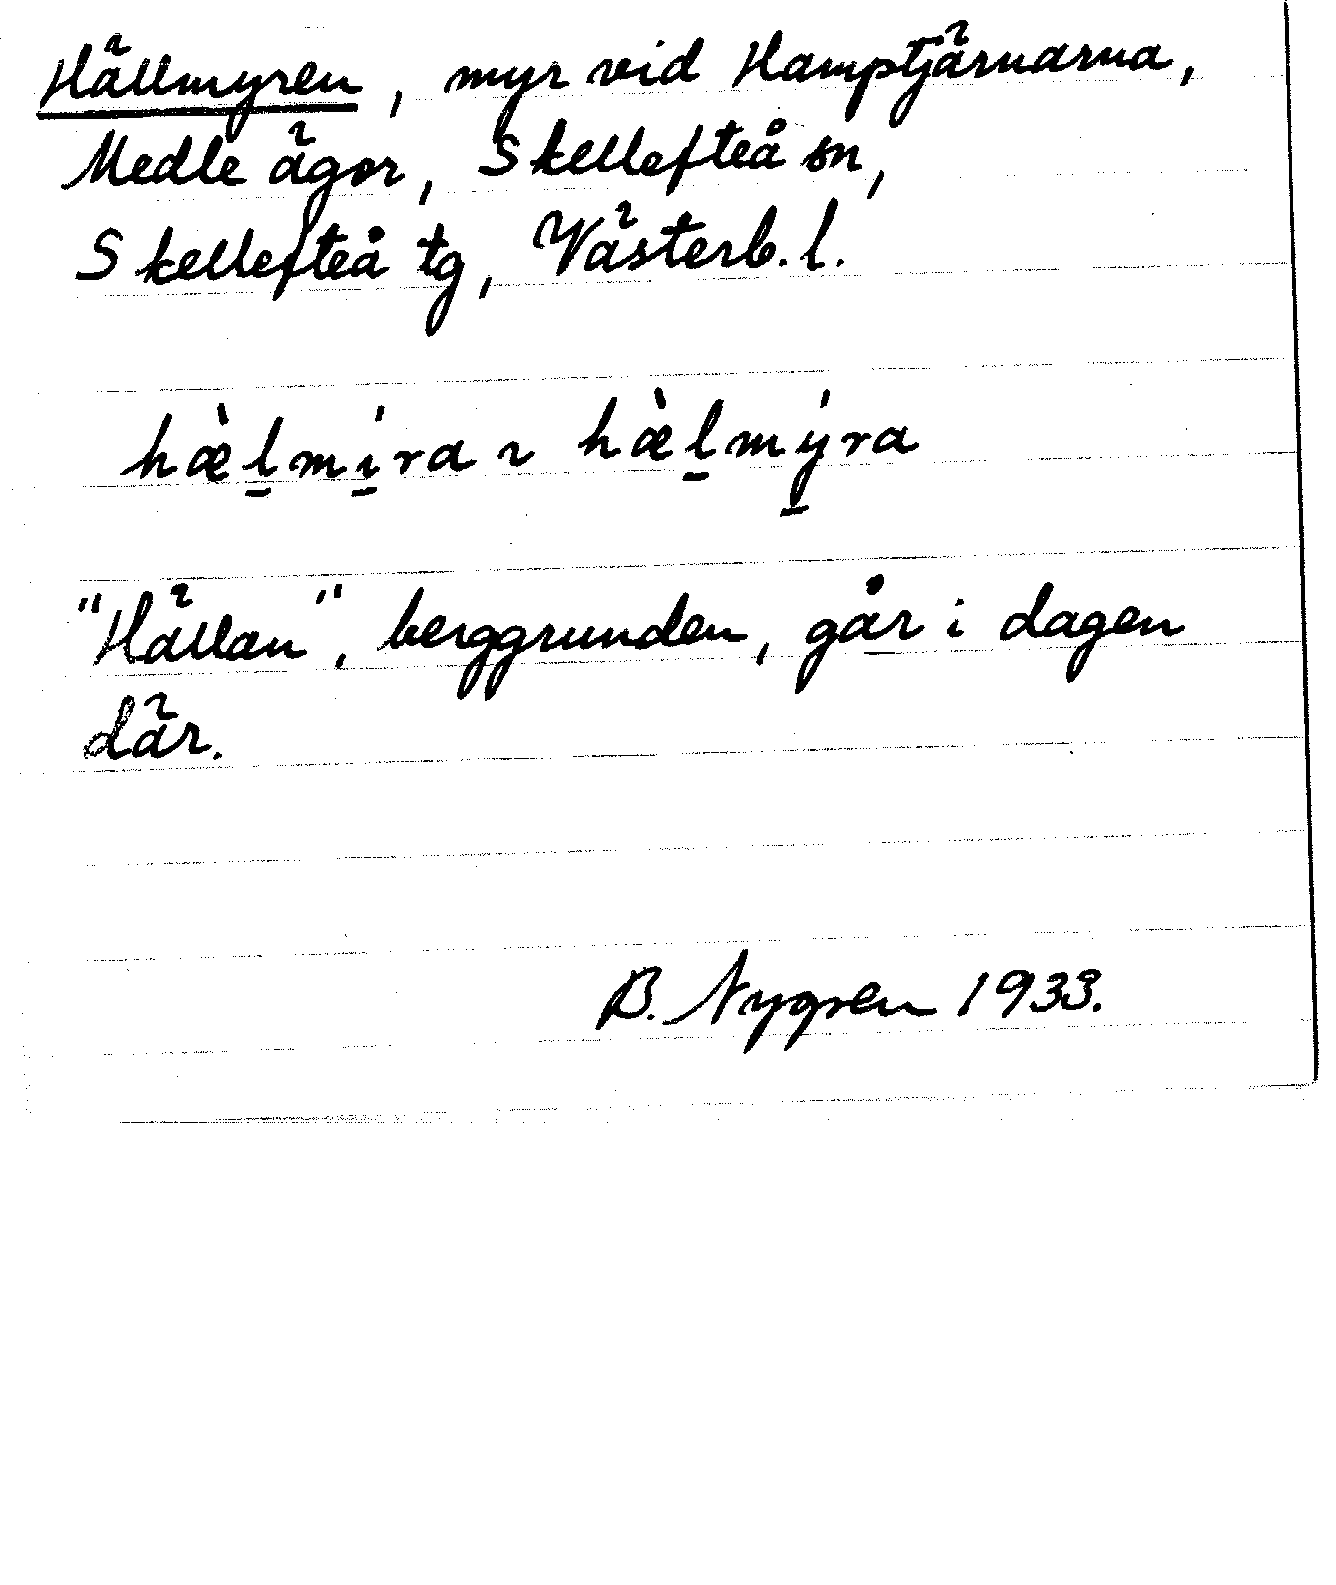 Hällmyren, myr vid Hamptjärnarna,
Medle ägor, Skellefteå sn,
Skellefteå tg, Västerb. l.
hæ̀l̠mi̠̍ra ~ hæ̀l̠my̠̍ra
"Hällan", berggrunden, går i dagen
där.
B. Nygren 1933.